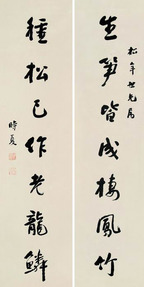 松年世兄屬
生笋皆成棲鳳竹
種松已作老龍鱗
時夏